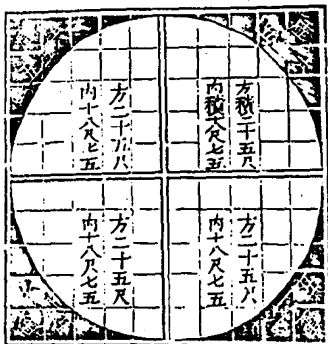 方積二十五尺
內積十八尺七五
方二十五尺
內十八尺七五
方二十五尺
內十八尺七五
方二十五尺
內十八尺七五